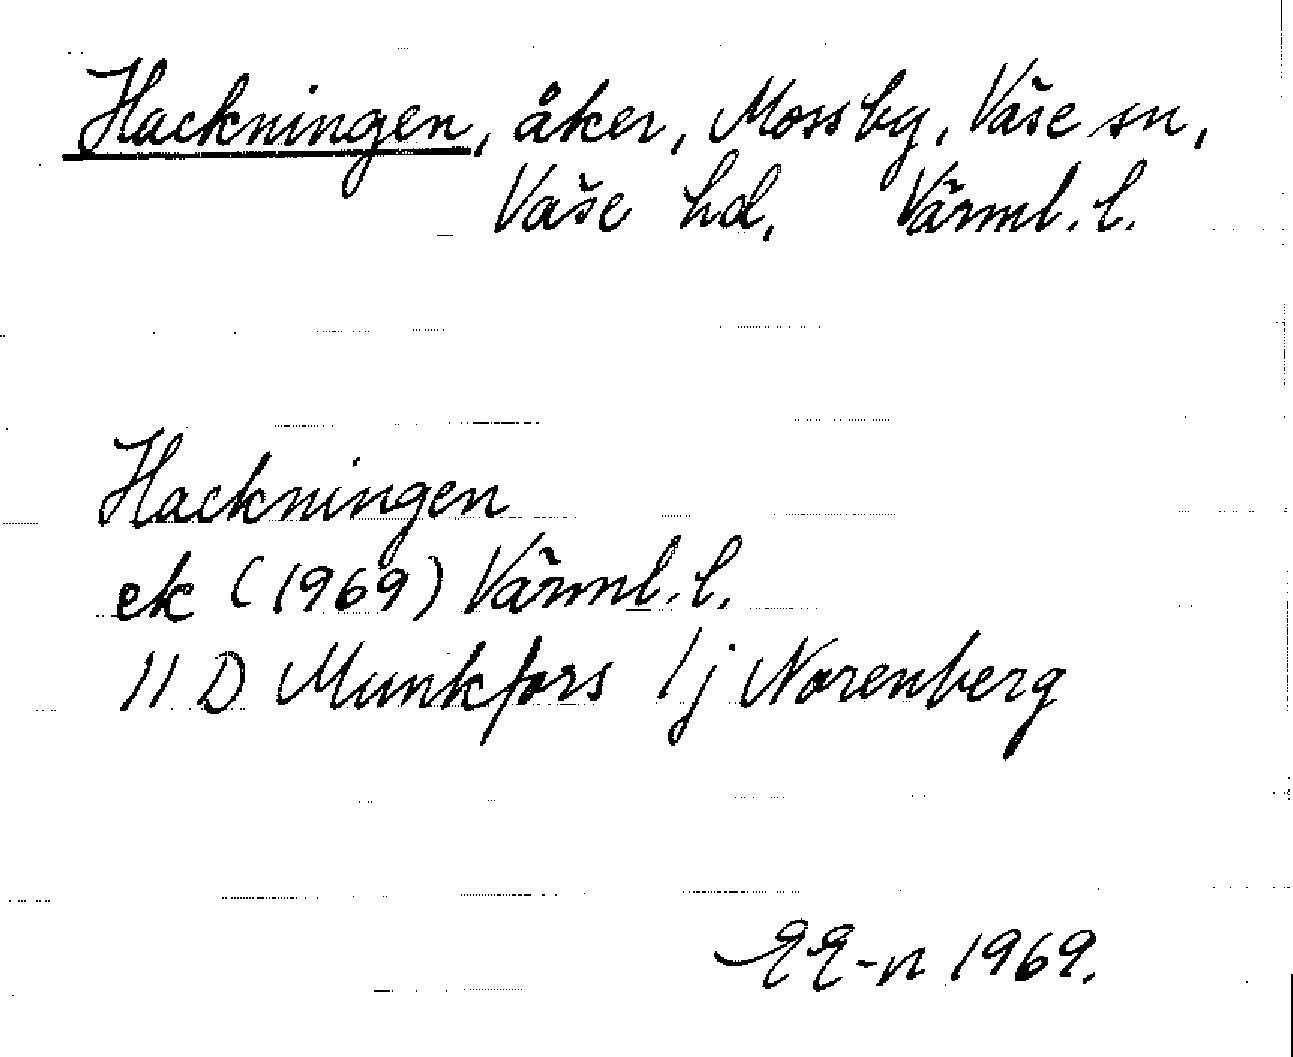 Hackningen, åker, Mossby, Väse sn,
Väse hd, Värml. l.
Hackningen
ek (1969) Värml. l.
11 D Munkfors 1j Norenberg
EE-n 1969.